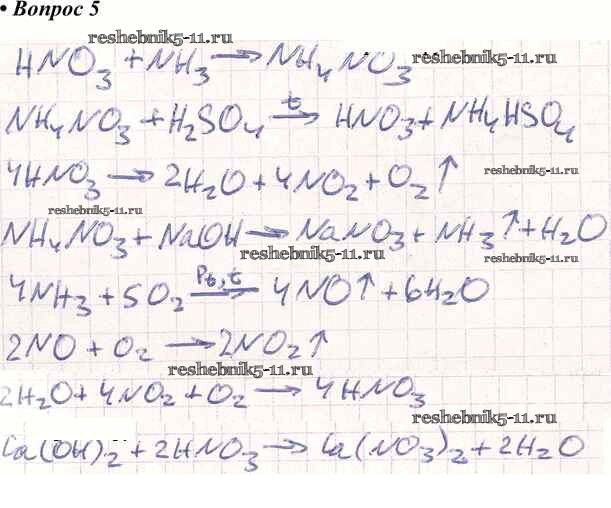 • Вопрос 5
reshebnik5-11.ru
HNO₃ + NH₃ → NH₄NO₃ reshebnik5-11.ru
NH₄NO₃ + H₂SO₄ →ᵗ HNO₃ + NH₄HSO₄
4HNO₃ → 2H₂O + 4NO₂ + O₂↑ reshebnik5-11.ru
reshebnik5-11.ru
NH₄NO₃ + NaOH → NaNO₃ + NH₃↑ + H₂O
reshebnik5-11.ru reshebnik5-11.ru
4NH₃ + 5O₂ →(Pt, t) 4NO↑ + 6H₂O
2NO + O₂ → 2NO₂↑
reshebnik5-11.ru
2H₂O + 4NO₂ + O₂ → 4HNO₃
reshebnik5-11.ru
Ca(OH)₂ + 2HNO₃ → Ca(NO₃)₂ + 2H₂O